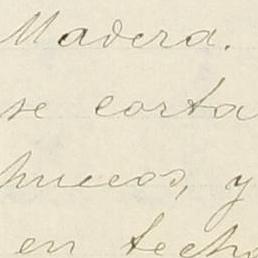 Madera.
se corta
huecos, y
en techo